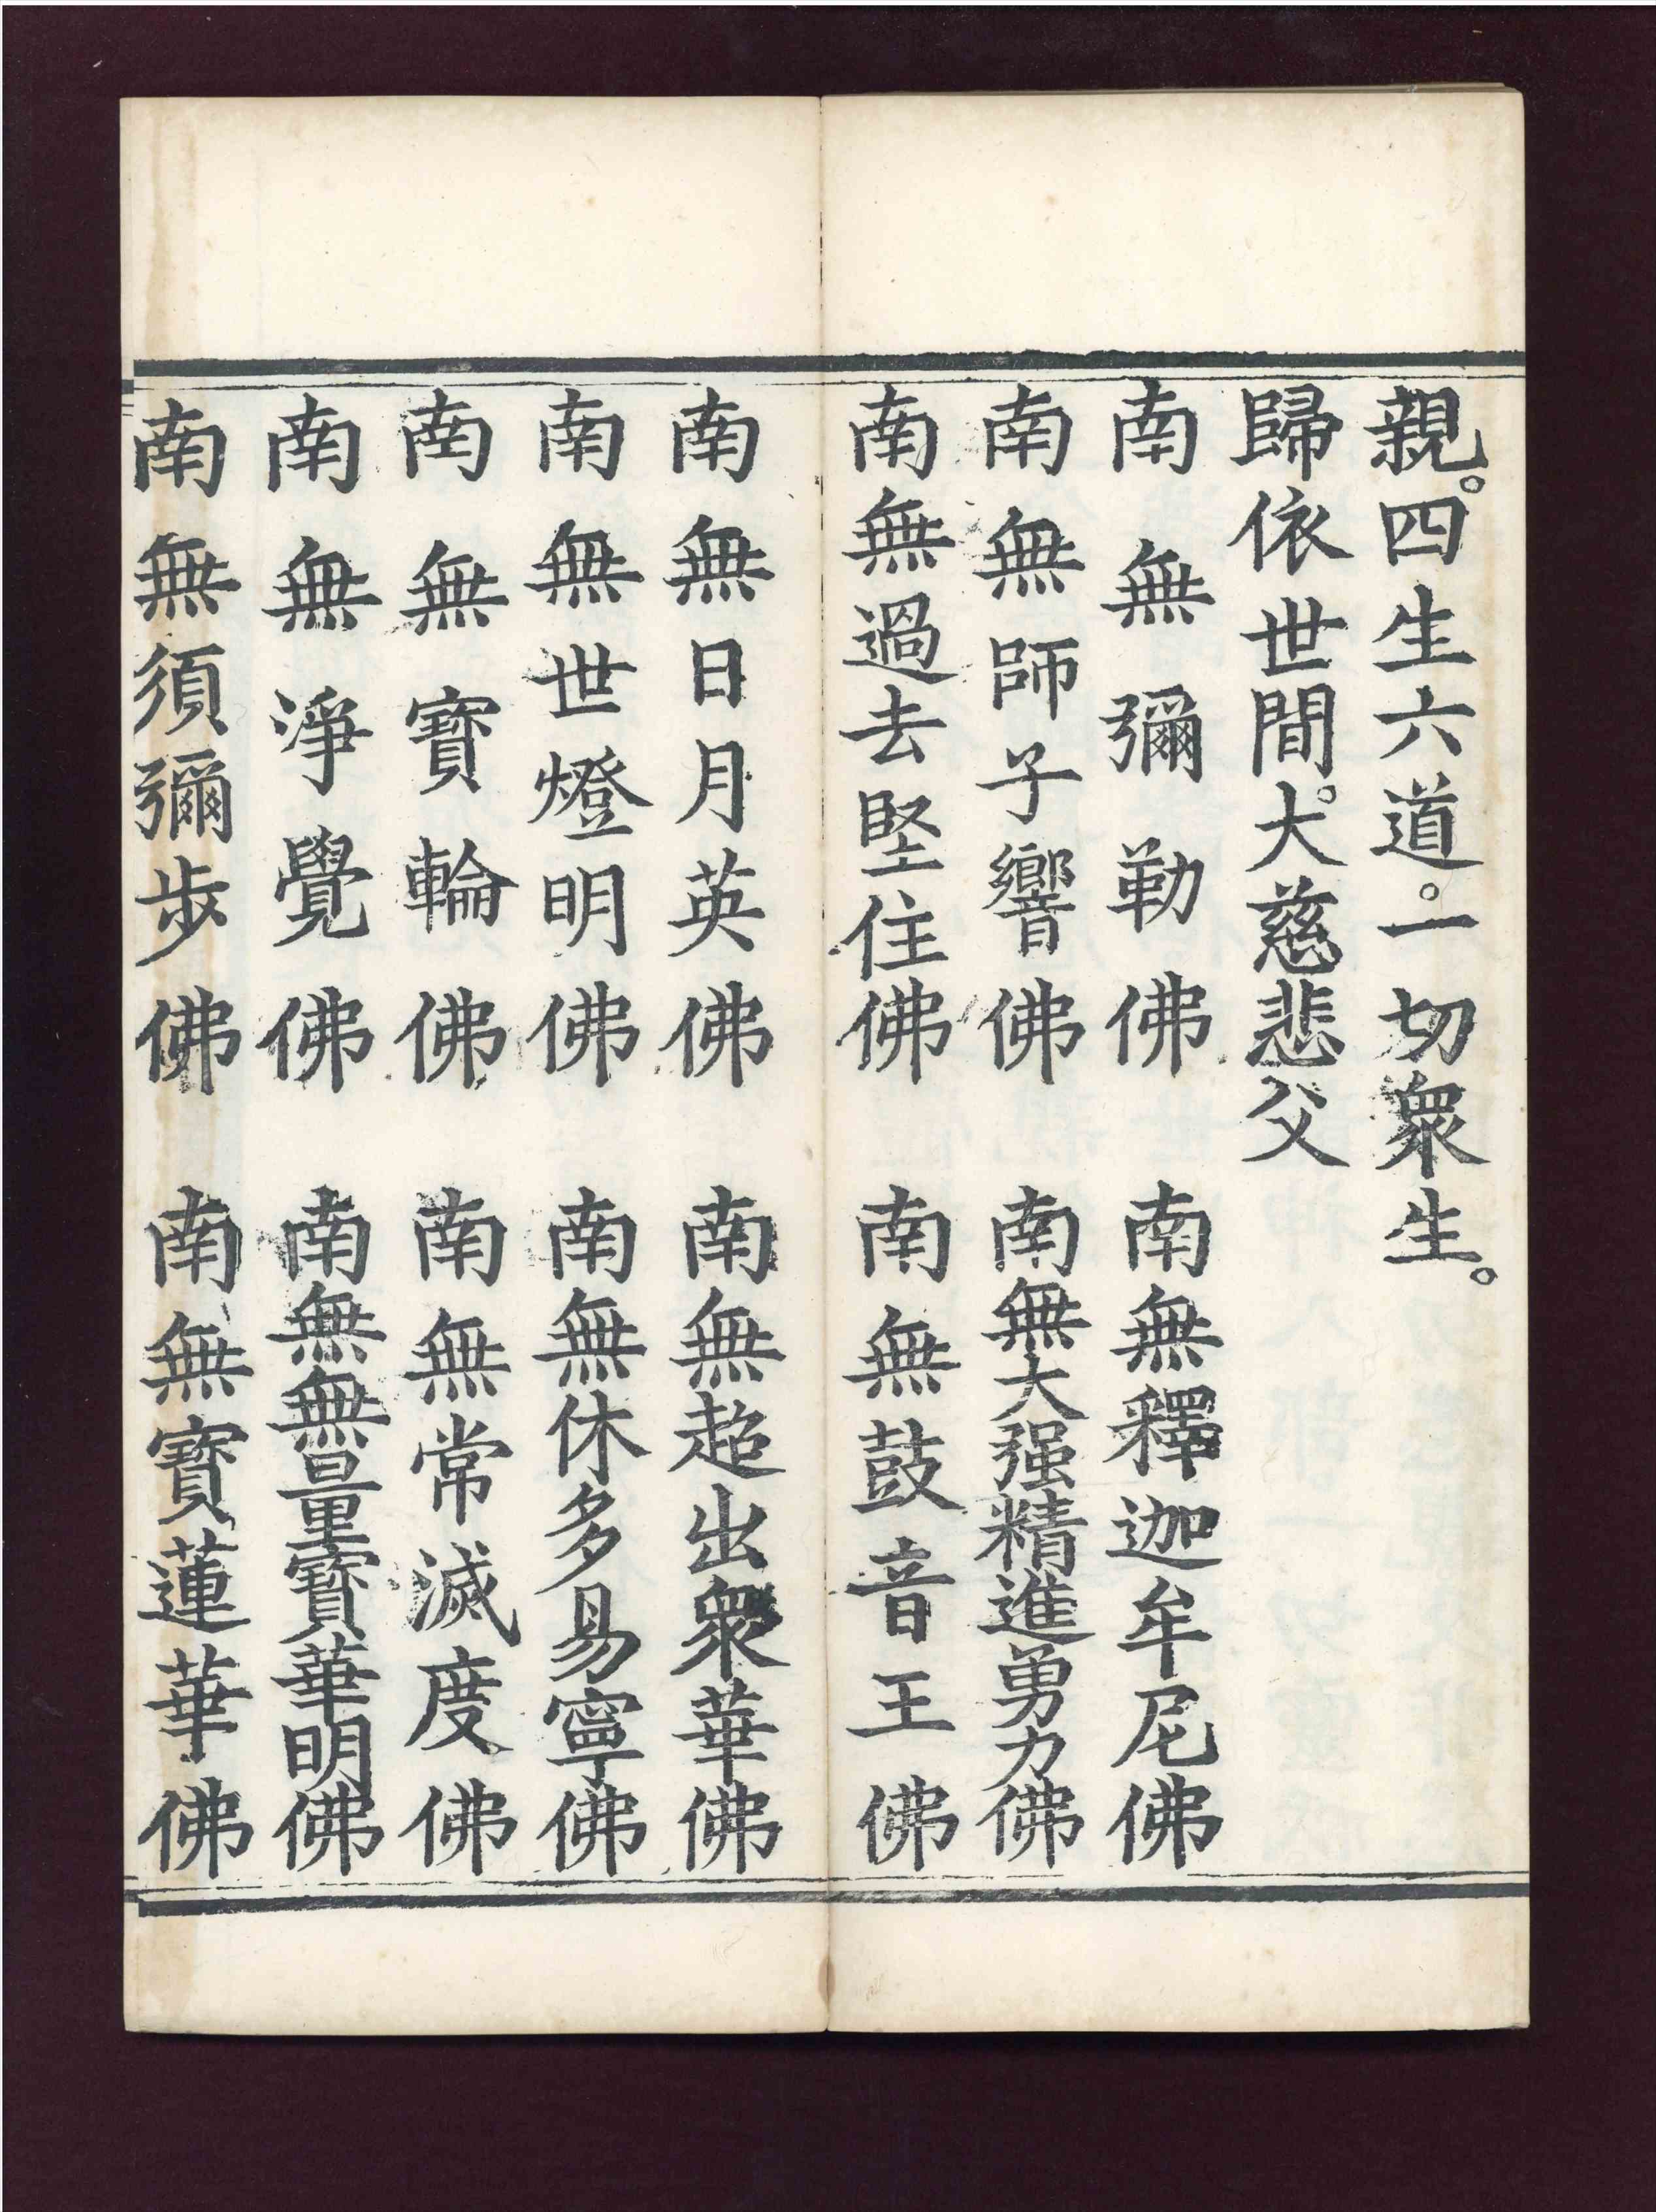 親。四生六道。一切衆生。
歸依世間。大慈悲父
南無彌勒佛　南無釋迦牟尼佛
南無師子響佛　南無大强精進勇力佛
南無過去堅住佛　南無鼓音王佛
南無日月英佛　南無超出衆華佛
南無世燈明佛　南無休多易寧佛
南無寶輪佛　南無常滅度佛
南無淨覺佛　南無無量寶華明佛
南無須彌步佛　南無寶蓮華佛